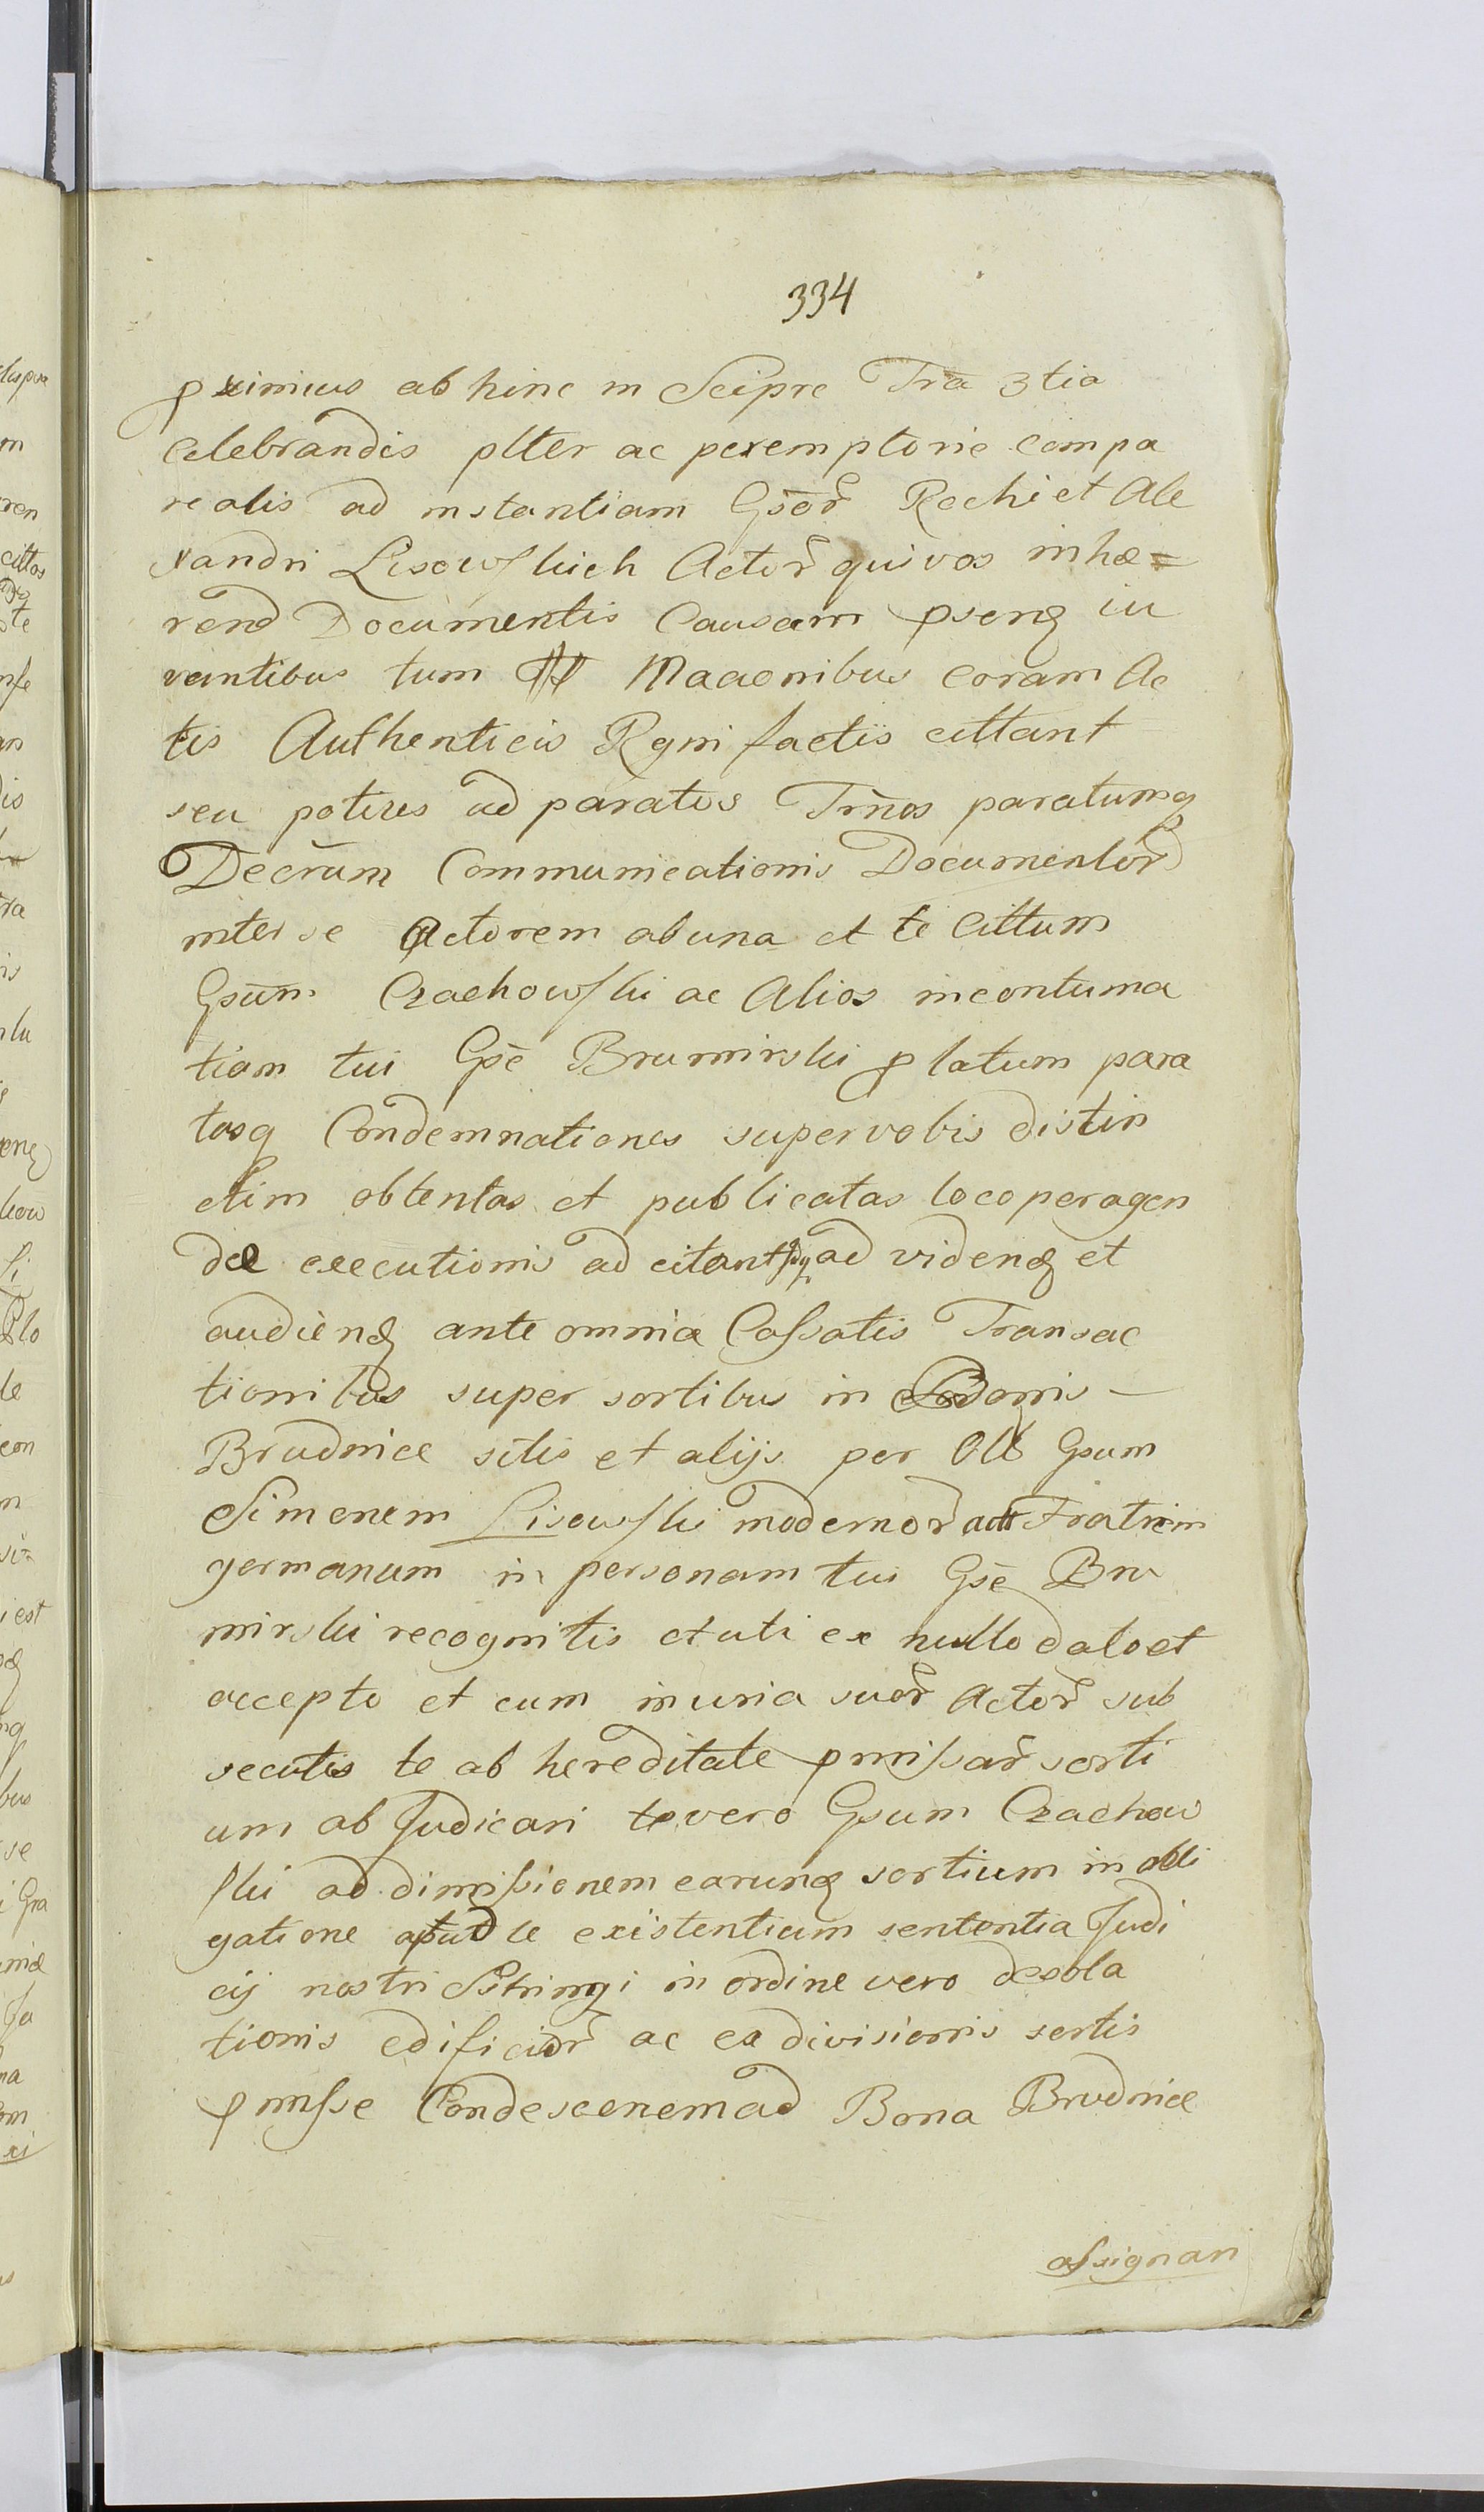 334
pximius ab hinc in Scipre Tra 3tia
Celebrandis plter ac peremptorie compa
reatis ad instantiam Gsor Rochi et Ale
xandri Lisowskich Actor qui vos inhæ=
rend Documentis Causam psenq iu
vantibus tum Maaonibus coram Ac
tis Authenticis Rgni factis cittant
seu potius ad paratos Trnos paratumq
Decrum Communicationis Documentor
inter se Actorem ab una et te Cittum
Gsum Czachowski ac Alios in contuma
tiam tui Gse Brumirski p latum para
tasq Condemnationes super vobis distin
ctim obtentas et publicatas loco peragen
dæ executionis ad citant ad videnq et
audienq ante omnia Cassatis Transac
tionibus super sortibus in Bonis —
Brudnice sitis et alijs per Olb Gsum
Simonem Lisowski modernor act Fratrem
germanum in personam tui Gse Bru
mirski recognitis et uti ex nullo dato et
accepto et cum iniuria suor Actor sub
secutis te ab hereditate pmissar sorti
um abjudicari te vero Gsum Czachow
ski ad dimissionem earunq sortium in obli
gatione apud te existentium sententia Judi
cij nostri Stringi in ordine vero desola
tionis edificior ac ex divisionis sortis
pmisse Condescenem ad Bona Brudnice
assignari